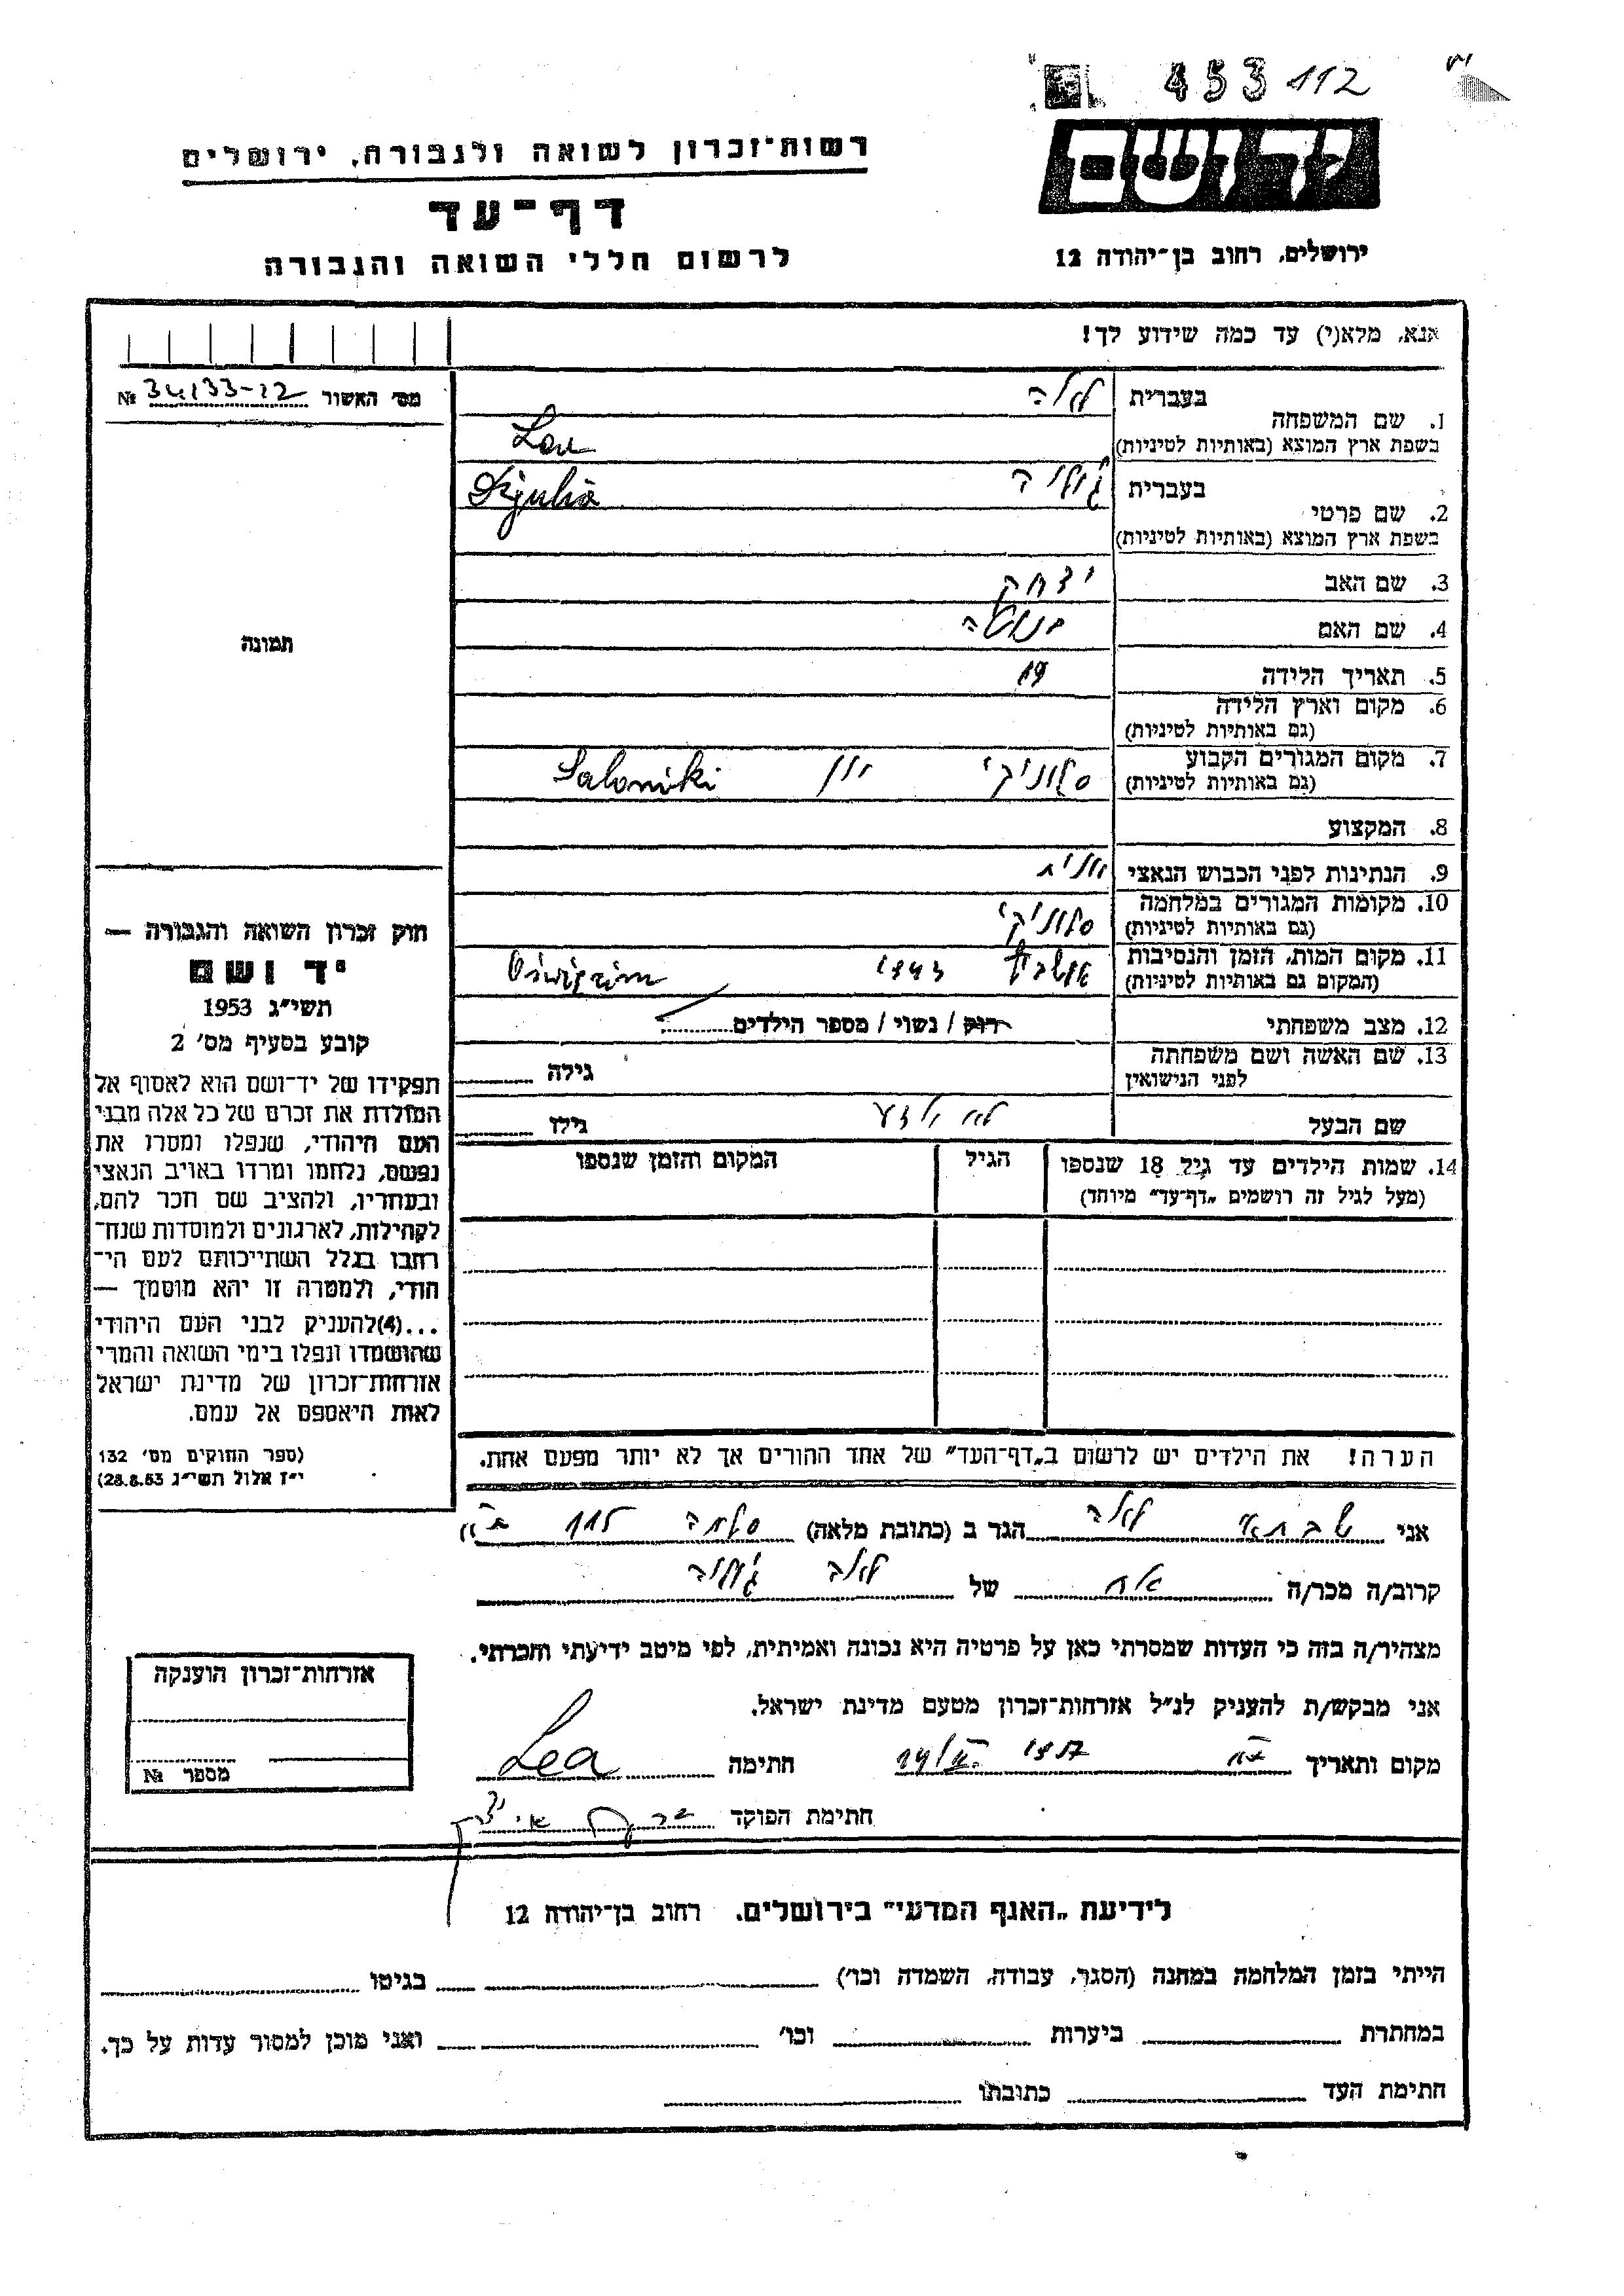 453 112
יד ושם
רשות־זכרון לשואה ולגבורה, ירושלים
דף־עד
לרשום חללי השואה והגבורה
ירושלים, רחוב בן־יהודה 12
אנא, מלא(י) עד כמה שידוע לך!
מס׳ האשור № 34133-12
בעברית
1. שם המשפחה
בשפת ארץ המוצא (באותיות לטיניות)
בעברית
2. שם פרטי
בשפת ארץ המוצא (באותיות לטיניות)
3. שם האב יצחק
4. שם האם
תמונה
5. תאריך הלידה 19
6. מקום וארץ הלידה
(גם באותיות לטיניות)
7. מקום המגורים הקבוע סלוניקי יון Saloniki
(גם באותיות לטיניות)
8. המקצוע
9. הנתינות לפני הכבוש הנאצי יונית
10. מקומות המגורים במלחמה סלוניקי
(גם באותיות לטיניות)
11. מקום המות, הזמן והנסיבות 1943
(המקום גם באותיות לטיניות)
12. מצב משפחתי רוק / נשוי / מספר הילדים
13. שם האשה ושם משפחתה
לפני הנישואין גילה
שם הבעל לא ידע גילו
14. שמות הילדים עד גיל 18 שנספו הגיל המקום והזמן שנספו
(מעל לגיל זה רושמים „דף־עד״ מיוחד)
הערה! את הילדים יש לרשום ב„דף־העד״ של אחד ההורים אך לא יותר מפעם אחת.
חוק זכרון השואה והגבורה —
יד ושם
תשי״ג 1953
קובע בסעיף מס׳ 2
תפקידו של יד־ושם הוא לאסוף אל
המולדת את זכרם של כל אלה מבני
העם היהודי, שנפלו ומסרו את
נפשם, נלחמו ומרדו באויב הנאצי
ובעוזריו, ולהציב שם וזכר להם,
לקהילות, לארגונים ולמוסדות שנח־
רבו בגלל השתייכותם לעם הי־
הודי, ולמטרה זו יהא מוסמך —
...(4)להעניק לבני העם היהודי
שהושמדו ונפלו בימי השואה והמרי
אזרחות־זכרון של מדינת ישראל
לאות היאספם אל עמם.
(ספר החוקים מס׳ 132
י״ז אלול תשי״ג 28.8.53)
אני שבתאי הגר ב (כתובת מלאה) סלמה 115
קרוב/ה מכר/ה אח של
מצהיר/ה בזה כי העדות שמסרתי כאן על פרטיה היא נכונה ואמיתית, לפי מיטב ידיעתי והכרתי.
אני מבקש/ת להעניק לנ״ל אזרחות־זכרון מטעם מדינת ישראל.
מקום ותאריך חתימה Lea
חתימת הפוקד
אזרחות־זכרון הוענקה
מספר №
לידיעת „האגף המדעי״ בירושלים. רחוב בן־יהודה 12
הייתי בזמן המלחמה במחנה (הסגר, עבודה, השמדה וכו׳) בגיטו
במחתרת ביערות וכו׳ ואני מוכן למסור עדות על כך.
חתימת העד כתובתו